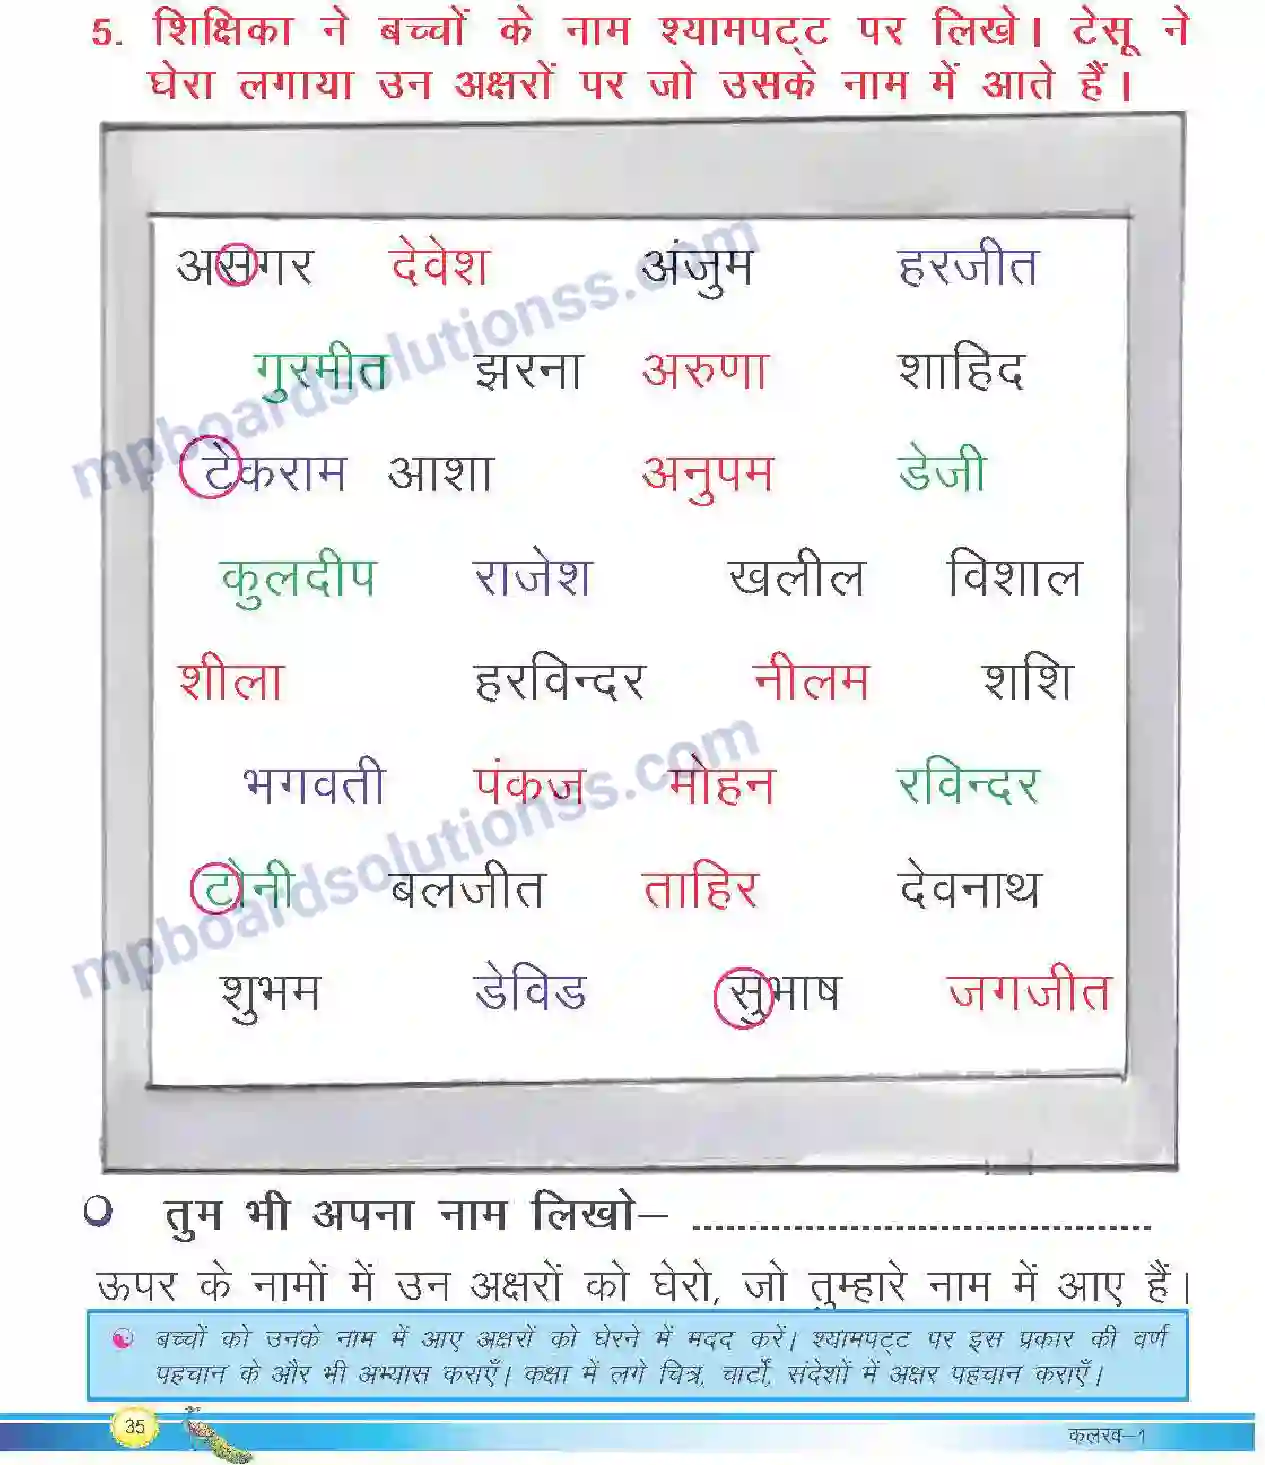 5. शिक्षिका ने बच्चों के नाम श्यामपट्ट पर लिखे। टेसू ने
घेरा लगाया उन अक्षरों पर जो उसके नाम में आते हैं।
असगर देवेश अंजुम हरजीत
गुरमीत झरना अरुणा शाहिद
टेकराम आशा अनुपम डेजी
कुलदीप राजेश खलील विशाल
शीला हरविन्दर नीलम शशि
भगवती पंकज मोहन रविन्दर
टोनी बलजीत ताहिर देवनाथ
शुभम डेविड सुभाष जगजीत
mpboardsolutionss.com
mpboardsolutionss.com
तुम भी अपना नाम लिखो– ........................................
ऊपर के नामों में उन अक्षरों को घेरो, जो तुम्हारे नाम में आए हैं।
बच्चों को उनके नाम में आए अक्षरों को घेरने में मदद करें। श्यामपट्ट पर इस प्रकार की वर्ण
पहचान के और भी अभ्यास कराएँ। कक्षा में लगे चित्र, चार्टों, संदेशों में अक्षर पहचान कराएँ।
35
कलरव–1